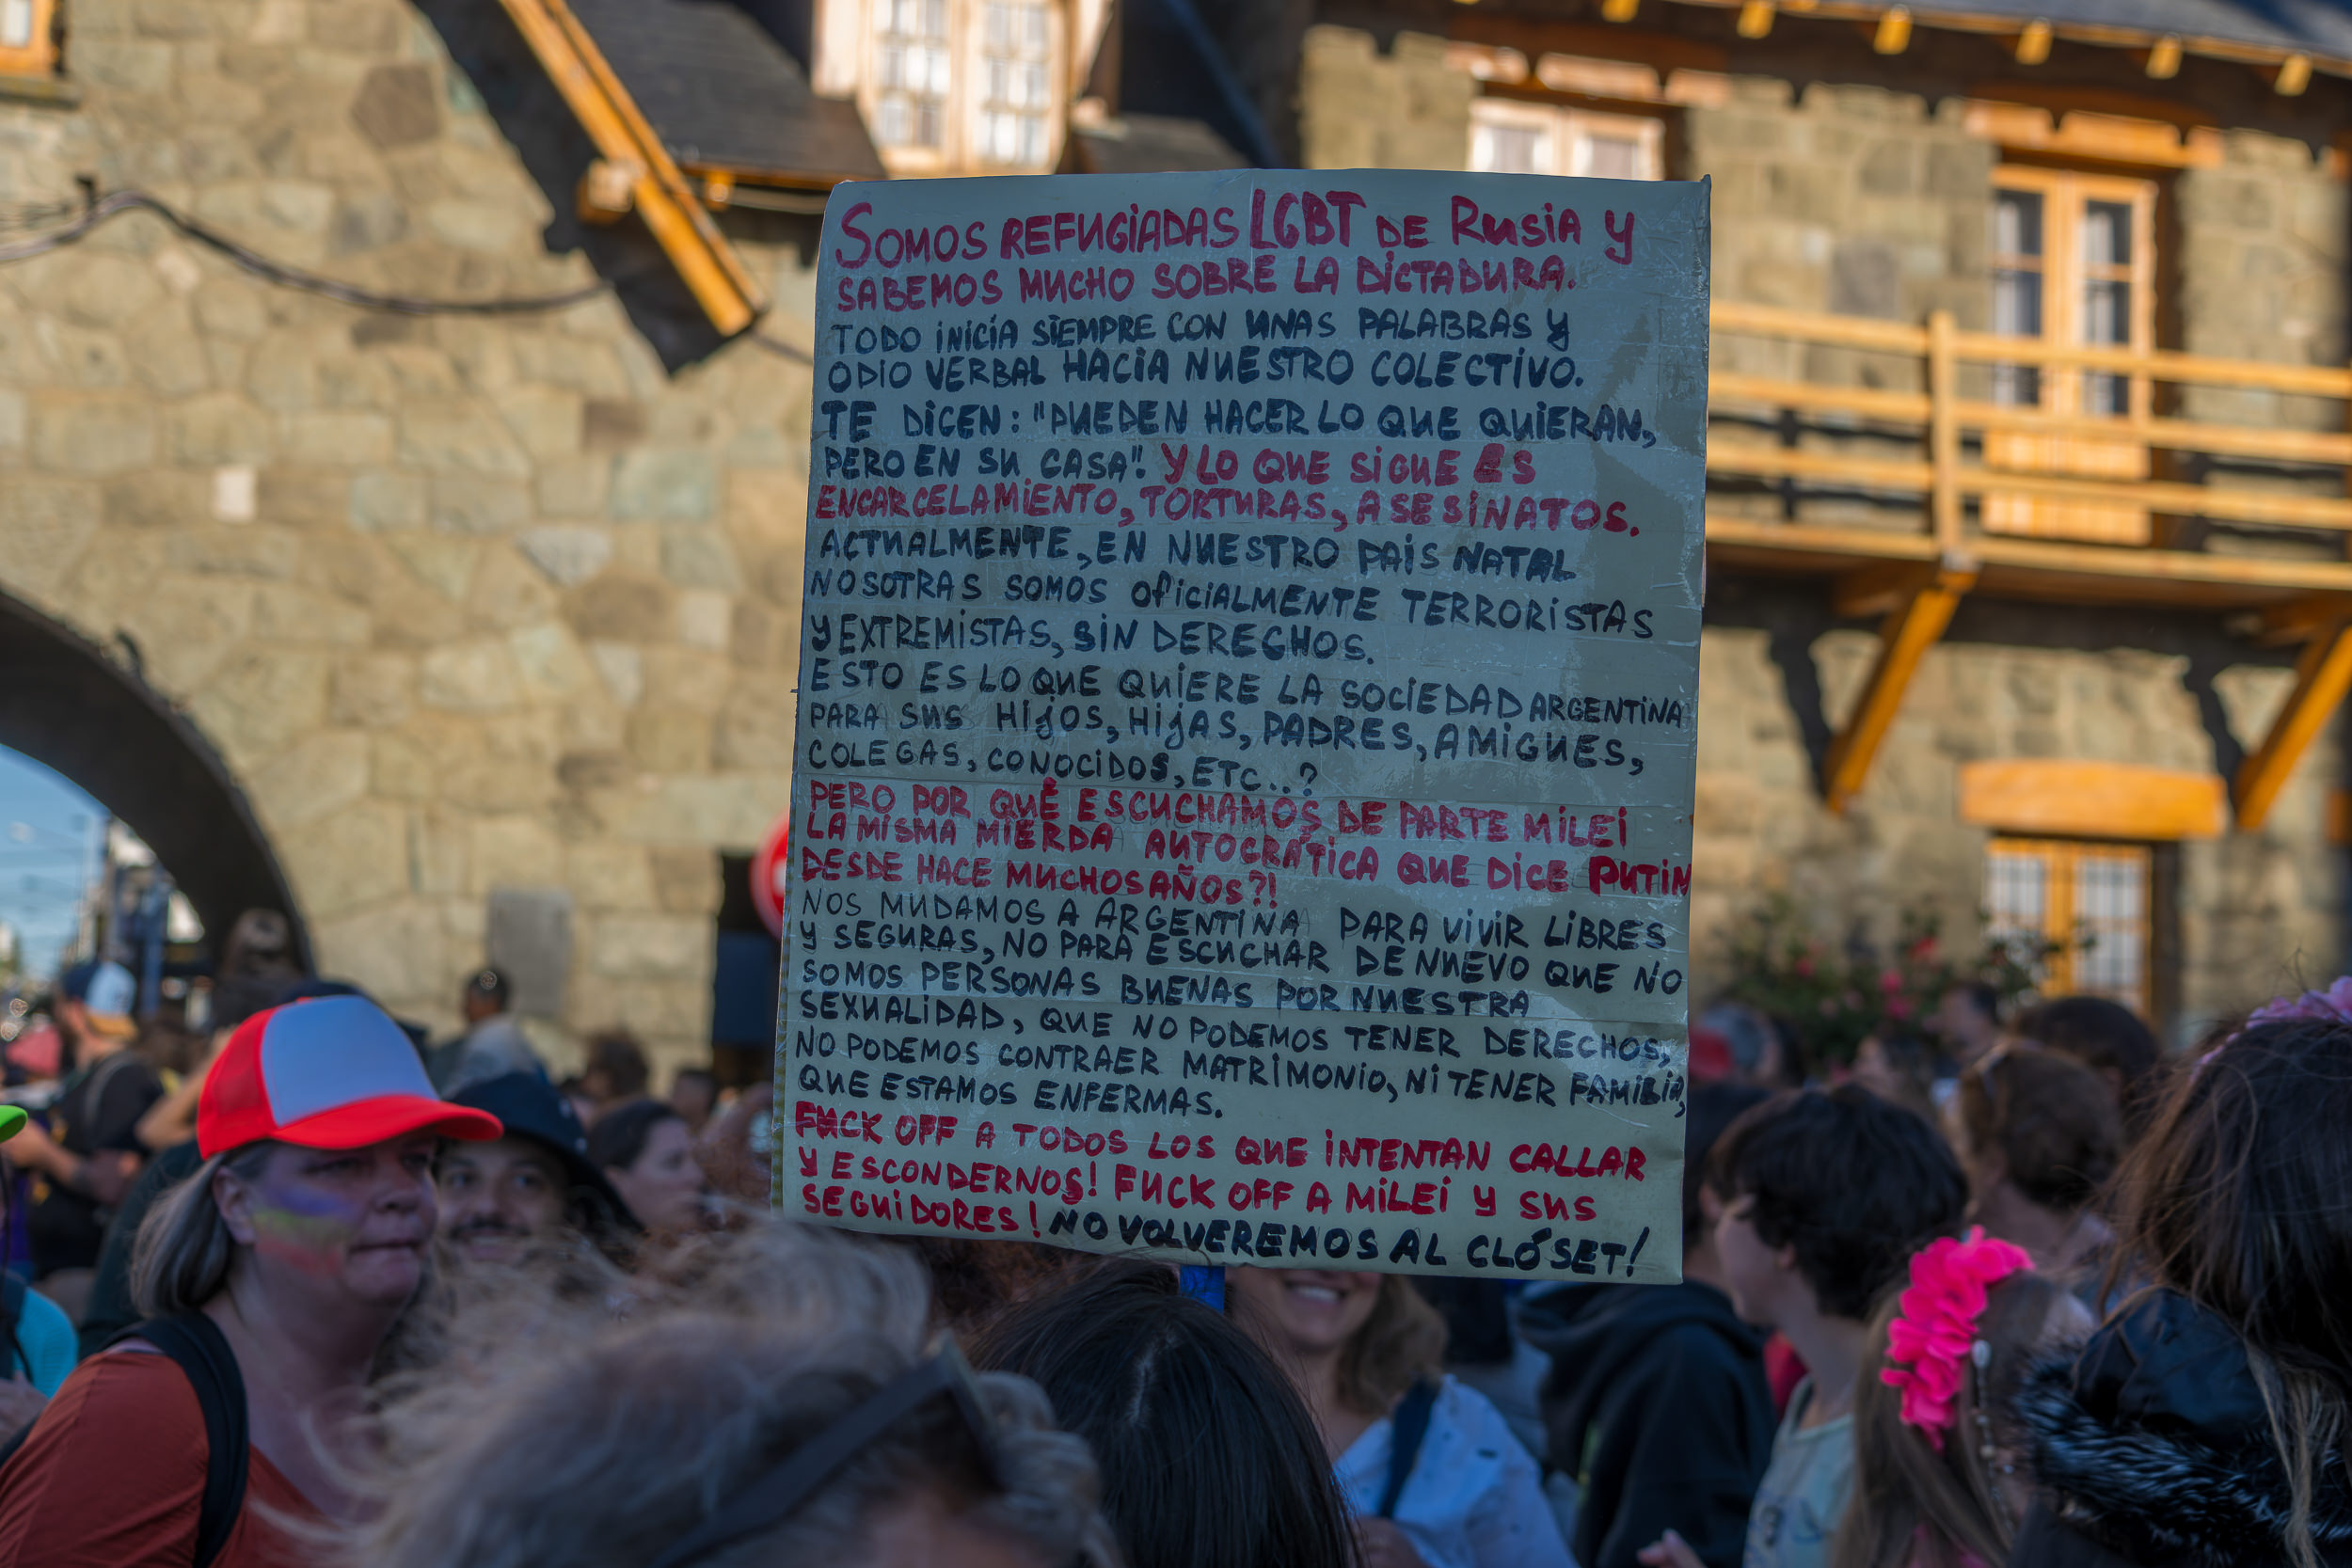 SOMOS REFUGIADAS LGBT DE RUSIA Y
SABEMOS MUCHO SOBRE LA DICTADURA.
TODO INICIA SIEMPRE CON UNAS PALABRAS Y
ODIO VERBAL HACIA NUESTRO COLECTIVO.
TE DICEN: "PUEDEN HACER LO QUE QUIERAN,
PERO EN SU CASA". Y LO QUE SIGUE ES
ENCARCELAMIENTO, TORTURAS, ASESINATOS.
ACTUALMENTE, EN NUESTRO PAIS NATAL
NOSOTRAS SOMOS OFICIALMENTE TERRORISTAS
Y EXTREMISTAS, SIN DERECHOS.
ESTO ES LO QUE QUIERE LA SOCIEDAD ARGENTINA
PARA SUS HIJOS, HIJAS, PADRES, AMIGUES,
COLEGAS, CONOCIDOS, ETC...?
PERO POR QUÉ ESCUCHAMOS DE PARTE MILEI
LA MISMA MIERDA AUTOCRÁTICA QUE DICE PUTIN
DESDE HACE MUCHOS AÑOS?!
NOS MUDAMOS A ARGENTINA PARA VIVIR LIBRES
Y SEGURAS, NO PARA ESCUCHAR DE NUEVO QUE NO
SOMOS PERSONAS BUENAS POR NUESTRA
SEXUALIDAD, QUE NO PODEMOS TENER DERECHOS,
NO PODEMOS CONTRAER MATRIMONIO, NI TENER FAMILIA,
QUE ESTAMOS ENFERMAS.
FUCK OFF A TODOS LOS QUE INTENTAN CALLAR
Y ESCONDERNOS! FUCK OFF A MILEI Y SUS
SEGUIDORES! NO VOLVEREMOS AL CLÓSET!